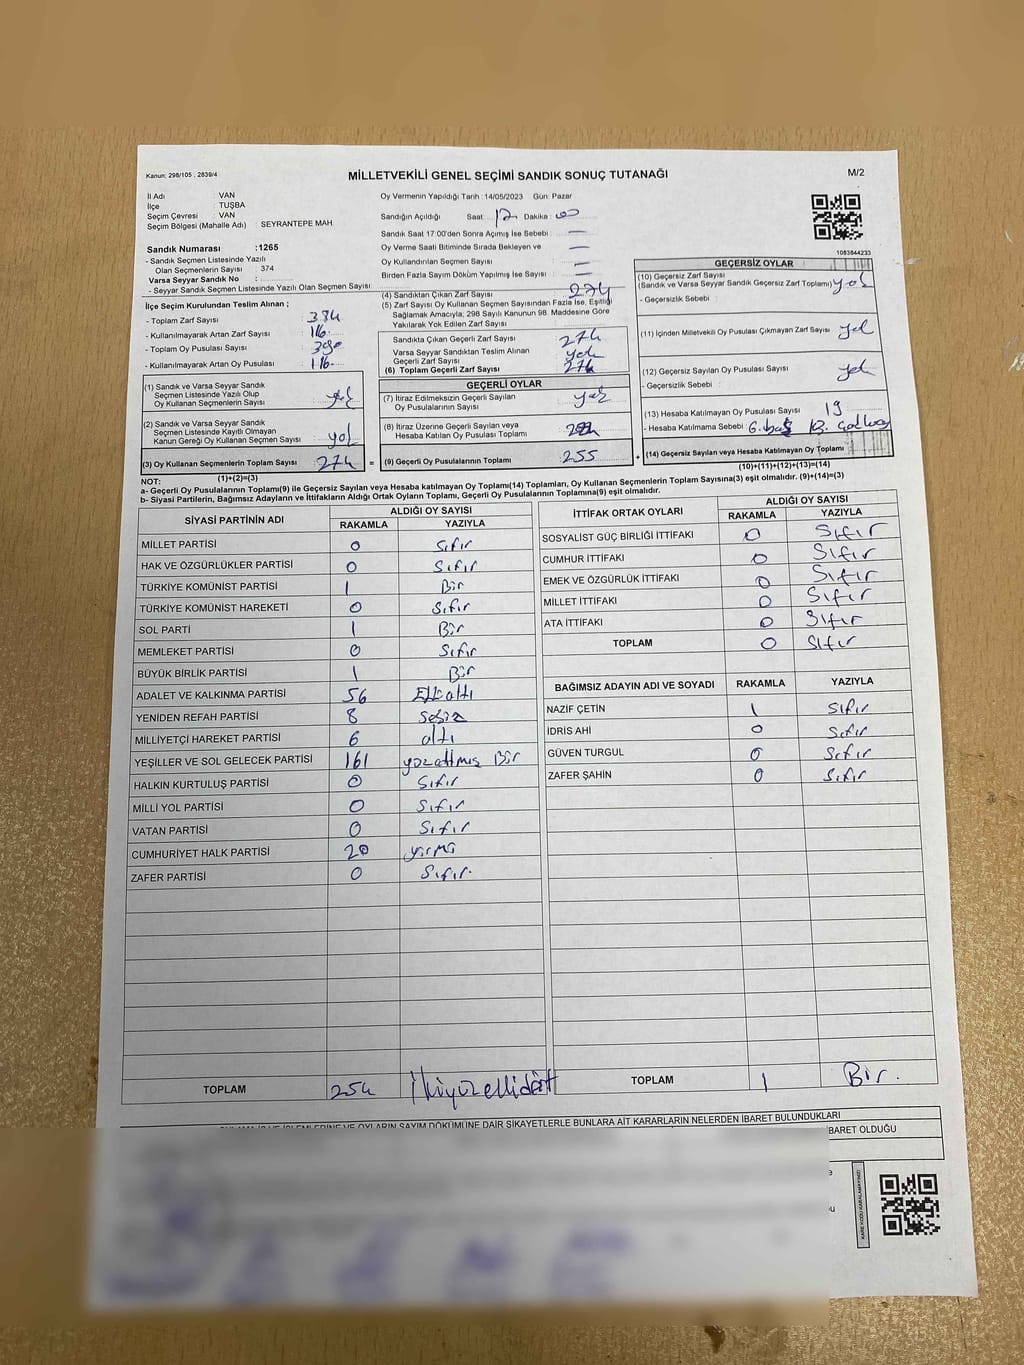 Kanun: 298/105 , 2839/4
MİLLETVEKİLİ GENEL SEÇİMİ SANDIK SONUÇ TUTANAĞI
M/2
İl Adı : VAN
İlçe : TUŞBA
Seçim Çevresi : VAN
Seçim Bölgesi (Mahalle Adı) SEYRANTEPE MAH
Sandık Numarası :1265
- Sandık Seçmen Listesinde Yazılı
Olan Seçmenlerin Sayısı : 374
Varsa Seyyar Sandık No :
- Seyyar Sandık Seçmen Listesinde Yazılı Olan Seçmen Sayısı
Oy Vermenin Yapıldığı Tarih :14/05/2023 Gün: Pazar
Sandığın Açıldığı Saat 17 Dakika 00
Sandık Saat 17:00'den Sonra Açılmış İse Sebebi : —
Oy Verme Saati Bitiminde Sırada Bekleyen ve
Oy Kullandırılan Seçmen Sayısı —
Birden Fazla Sayım Döküm Yapılmış İse Sayısı : —
1083644233
İlçe Seçim Kurulundan Teslim Alınan ;
- Toplam Zarf Sayısı :
- Kullanılmayarak Artan Zarf Sayısı : 116
- Toplam Oy Pusulası Sayısı : 390
- Kullanılmayarak Artan Oy Pusulası : 116
(1) Sandık ve Varsa Seyyar Sandık
Seçmen Listesinde Yazılı Olup
Oy Kullanan Seçmenlerin Sayısı :
(2) Sandık ve Varsa Seyyar Sandık
Seçmen Listesinde Kayıtlı Olmayan
Kanun Gereği Oy Kullanan Seçmen Sayısı : yok
(3) Oy Kullanan Seçmenlerin Toplam Sayısı : 274
(1)+(2)=(3)
(4) Sandıktan Çıkan Zarf Sayısı : 274
(5) Zarf Sayısı Oy Kullanan Seçmen Sayısından Fazla İse, Eşitliği
Sağlamak Amacıyla; 298 Sayılı Kanunun 98. Maddesine Göre
Yakılarak Yok Edilen Zarf Sayısı :
Sandıkta Çıkan Geçerli Zarf Sayısı 274
Varsa Seyyar Sandıktan Teslim Alınan
Geçerli Zarf Sayısı yok
(6) Toplam Geçerli Zarf Sayısı 274
GEÇERLİ OYLAR
(7) İtiraz Edilmeksizin Geçerli Sayılan
Oy Pusulalarının Sayısı :
(8) İtiraz Üzerine Geçerli Sayılan veya
Hesaba Katılan Oy Pusulası Toplamı :
= (9) Geçerli Oy Pusulalarının Toplamı : 255 +
GEÇERSİZ OYLAR
(10) Geçersiz Zarf Sayısı
(Sandık ve Varsa Seyyar Sandık Geçersiz Zarf Toplamı) yok
- Geçersizlik Sebebi :
(11) İçinden Milletvekili Oy Pusulası Çıkmayan Zarf Sayısı yok
(12) Geçersiz Sayılan Oy Pusulası Sayısı yok
- Geçersizlik Sebebi :
(13) Hesaba Katılmayan Oy Pusulası Sayısı 19
- Hesaba Katılmama Sebebi
(14) Geçersiz Sayılan veya Hesaba Katılmayan Oy Toplamı
(10)+(11)+(12)+(13)=(14)
NOT:
a- Geçerli Oy Pusulalarının Toplamı(9) ile Geçersiz Sayılan veya Hesaba katılmayan Oy Toplamı(14) Toplamları, Oy Kullanan Seçmenlerin Toplam Sayısına(3) eşit olmalıdır. (9)+(14)=(3)
b- Siyasi Partilerin, Bağımsız Adayların ve İttifakların Aldığı Ortak Oyların Toplamı, Geçerli Oy Pusulalarının Toplamına(9) eşit olmalıdır.
SİYASİ PARTİNİN ADI ALDIĞI OY SAYISI
RAKAMLA YAZIYLA
MİLLET PARTİSİ 0 Sıfır
HAK VE ÖZGÜRLÜKLER PARTİSİ 0 Sıfır
TÜRKİYE KOMÜNİST PARTİSİ 1 Bir
TÜRKİYE KOMÜNİST HAREKETİ 0 Sıfır
SOL PARTİ 1 Bir
MEMLEKET PARTİSİ 0 Sıfır
BÜYÜK BİRLİK PARTİSİ 1 Bir
ADALET VE KALKINMA PARTİSİ 56 Elli altı
YENİDEN REFAH PARTİSİ 8 sekiz
MİLLİYETÇİ HAREKET PARTİSİ 6 altı
YEŞİLLER VE SOL GELECEK PARTİSİ 161 yüzatmış Bir
HALKIN KURTULUŞ PARTİSİ 0 Sıfır
MİLLİ YOL PARTİSİ 0 Sıfır
VATAN PARTİSİ 0 Sıfır
CUMHURİYET HALK PARTİSİ 20 yirmi
ZAFER PARTİSİ 0 Sıfır
TOPLAM 254 İkiyüzellidört
İTTİFAK ORTAK OYLARI ALDIĞI OY SAYISI
RAKAMLA YAZIYLA
SOSYALİST GÜÇ BİRLİĞİ İTTİFAKI 0 Sıfır
CUMHUR İTTİFAKI 0 Sıfır
EMEK VE ÖZGÜRLÜK İTTİFAKI 0 Sıfır
MİLLET İTTİFAKI 0 Sıfır
ATA İTTİFAKI 0 Sıfır
TOPLAM 0 Sıfır
BAĞIMSIZ ADAYIN ADI VE SOYADI RAKAMLA YAZIYLA
NAZİF ÇETİN 1 Sıfır
İDRİS AHİ 0 Sıfır
GÜVEN TURGUL 0 Sıfır
ZAFER ŞAHİN 0 Sıfır
TOPLAM 1 Bir.
İŞLEMLERİNE VE OYLARIN SAYIM DÖKÜMÜNE DAİR ŞİKAYETLERLE BUNLARA AİT KARARLARIN NELERDEN İBARET BULUNDUKLARI
BARET OLDUĞU
KARE KODU KARALAMAYINIZ!